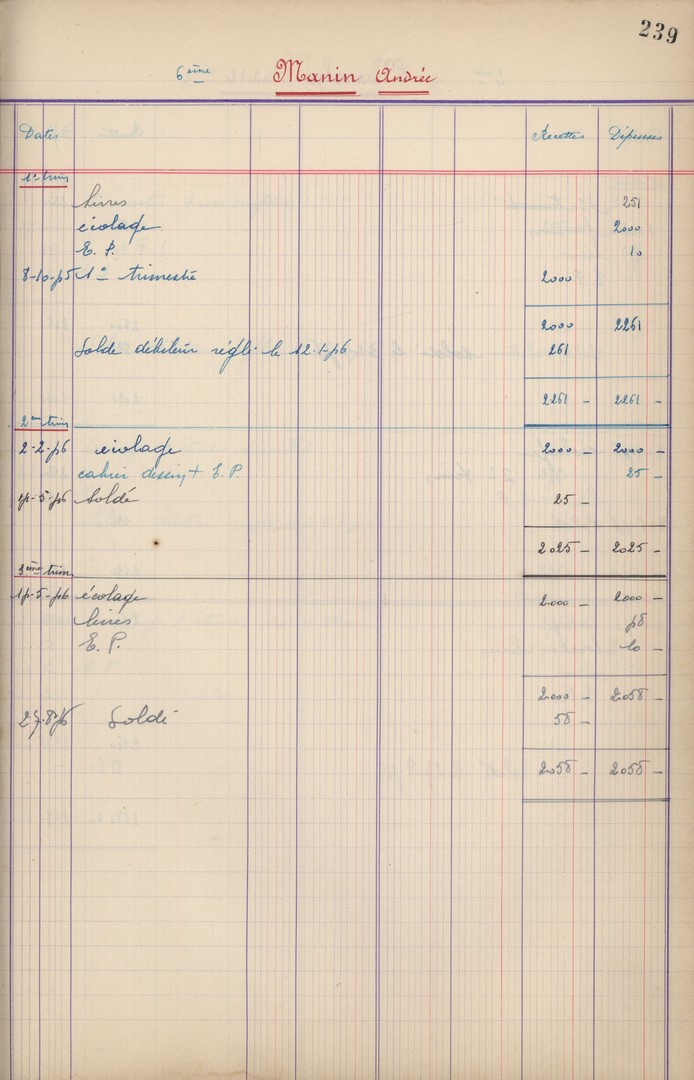 239
6ème Manin Andrée
Dates Recettes Dépenses
1er trim
Livres 251
écolage 2000
E. P. 10
8-10-45 1er trimestre 2000
2000 2261
Solde débiteur réglé le 12.1-46 261
2261 - 2261 -
2ème trim
2-2-46 écolage 2000 - 2000 -
cahier dessin + E. P. 25 -
14-5-46 Soldé 25 -
2025 - 2025 -
3ème trim
14-5-46 écolage 2000 - 2000 -
livres 48
E. P. 10 -
2000 - 2058 -
27-8-46 Soldé 58 -
2058 - 2058 -